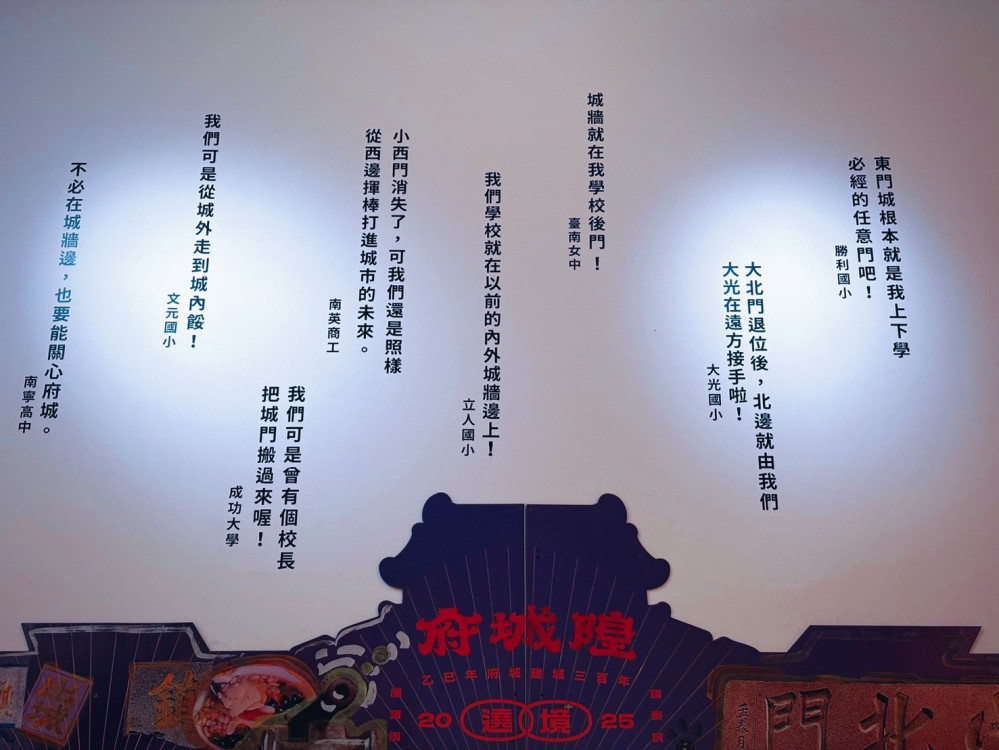 東門城根本就是我上下學
必經的任意門吧！
勝利國小
大北門退位後，北邊就由我們
大光在遠方接手啦！
大光國小
城牆就在我學校後門！
臺南女中
我們學校就在以前的內外城牆邊上！
立人國小
小西門消失了，可我們還是照樣
從西邊揮棒打進城市的未來。
南英商工
我們可是曾有個校長
把城門搬過來喔！
成功大學
我們可是從城外走到城內餒！
文元國小
不必在城牆邊，也要能關心府城。
南寧高中
府城隍
乙巳年府城建城三百年
20 遶境 25
門北